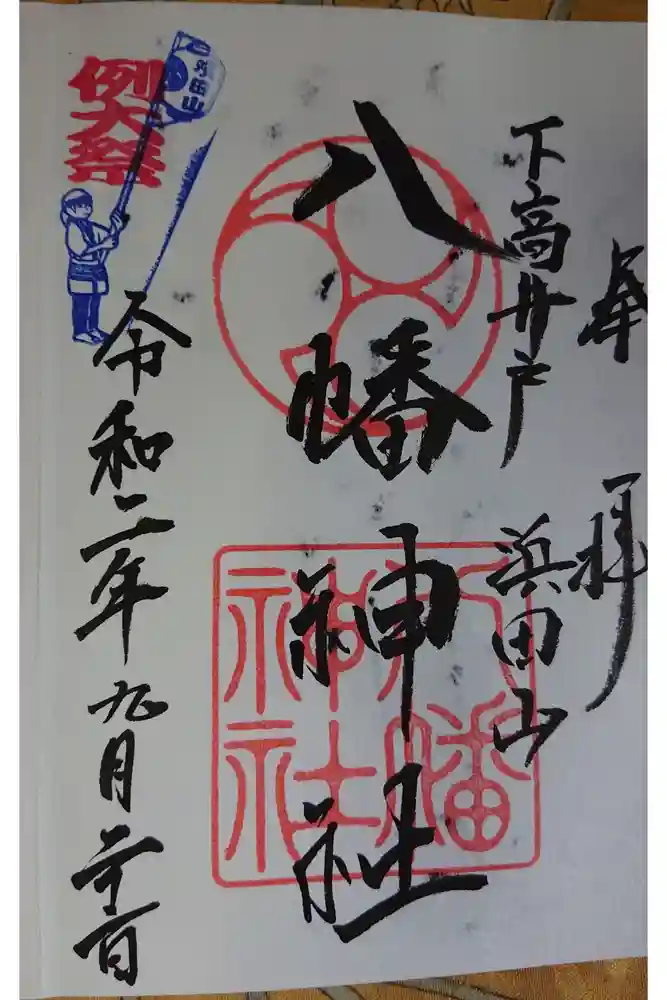 奉拝
下高井戸
浜田山
八幡神社
八幡
神社
例大祭
令和二年九月二十一日